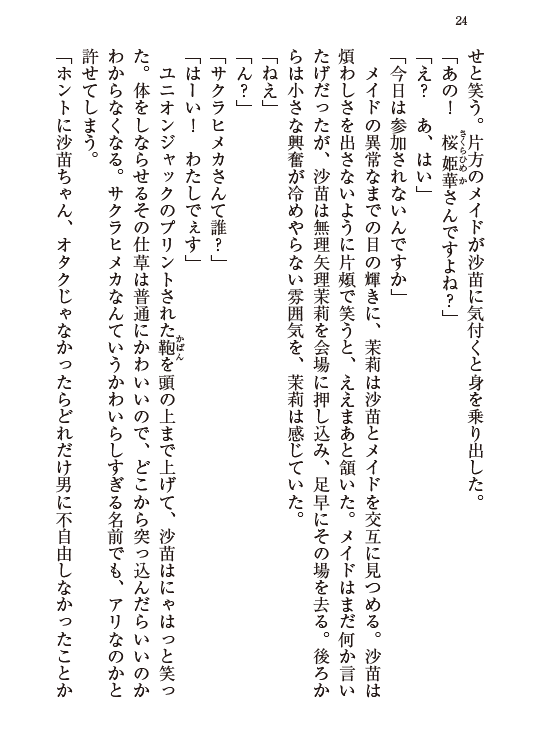 24
せと笑う。片方のメイドが沙苗に気付くと身を乗り出した。
「あの！　桜姫華さんですよね？」
さくらひめか
「え？　あ、はい」
「今日は参加されないんですか」
　メイドの異常なまでの目の輝きに、茉莉は沙苗とメイドを交互に見つめる。沙苗は
煩わしさを出さないように片頰で笑うと、ええまあと頷いた。メイドはまだ何か言い
たげだったが、沙苗は無理矢理茉莉を会場に押し込み、足早にその場を去る。後ろか
らは小さな興奮が冷めやらない雰囲気を、茉莉は感じていた。
「ねえ」
「ん？」
「サクラヒメカさんて誰？」
「はーい！　わたしでぇす」
　ユニオンジャックのプリントされた鞄を頭の上まで上げて、沙苗はにゃはっと笑っ
かばん
た。体をしならせるその仕草は普通にかわいいので、どこから突っ込んだらいいのか
わからなくなる。サクラヒメカなんていうかわいらしすぎる名前でも、アリなのかと
許せてしまう。
「ホントに沙苗ちゃん、オタクじゃなかったらどれだけ男に不自由しなかったことか